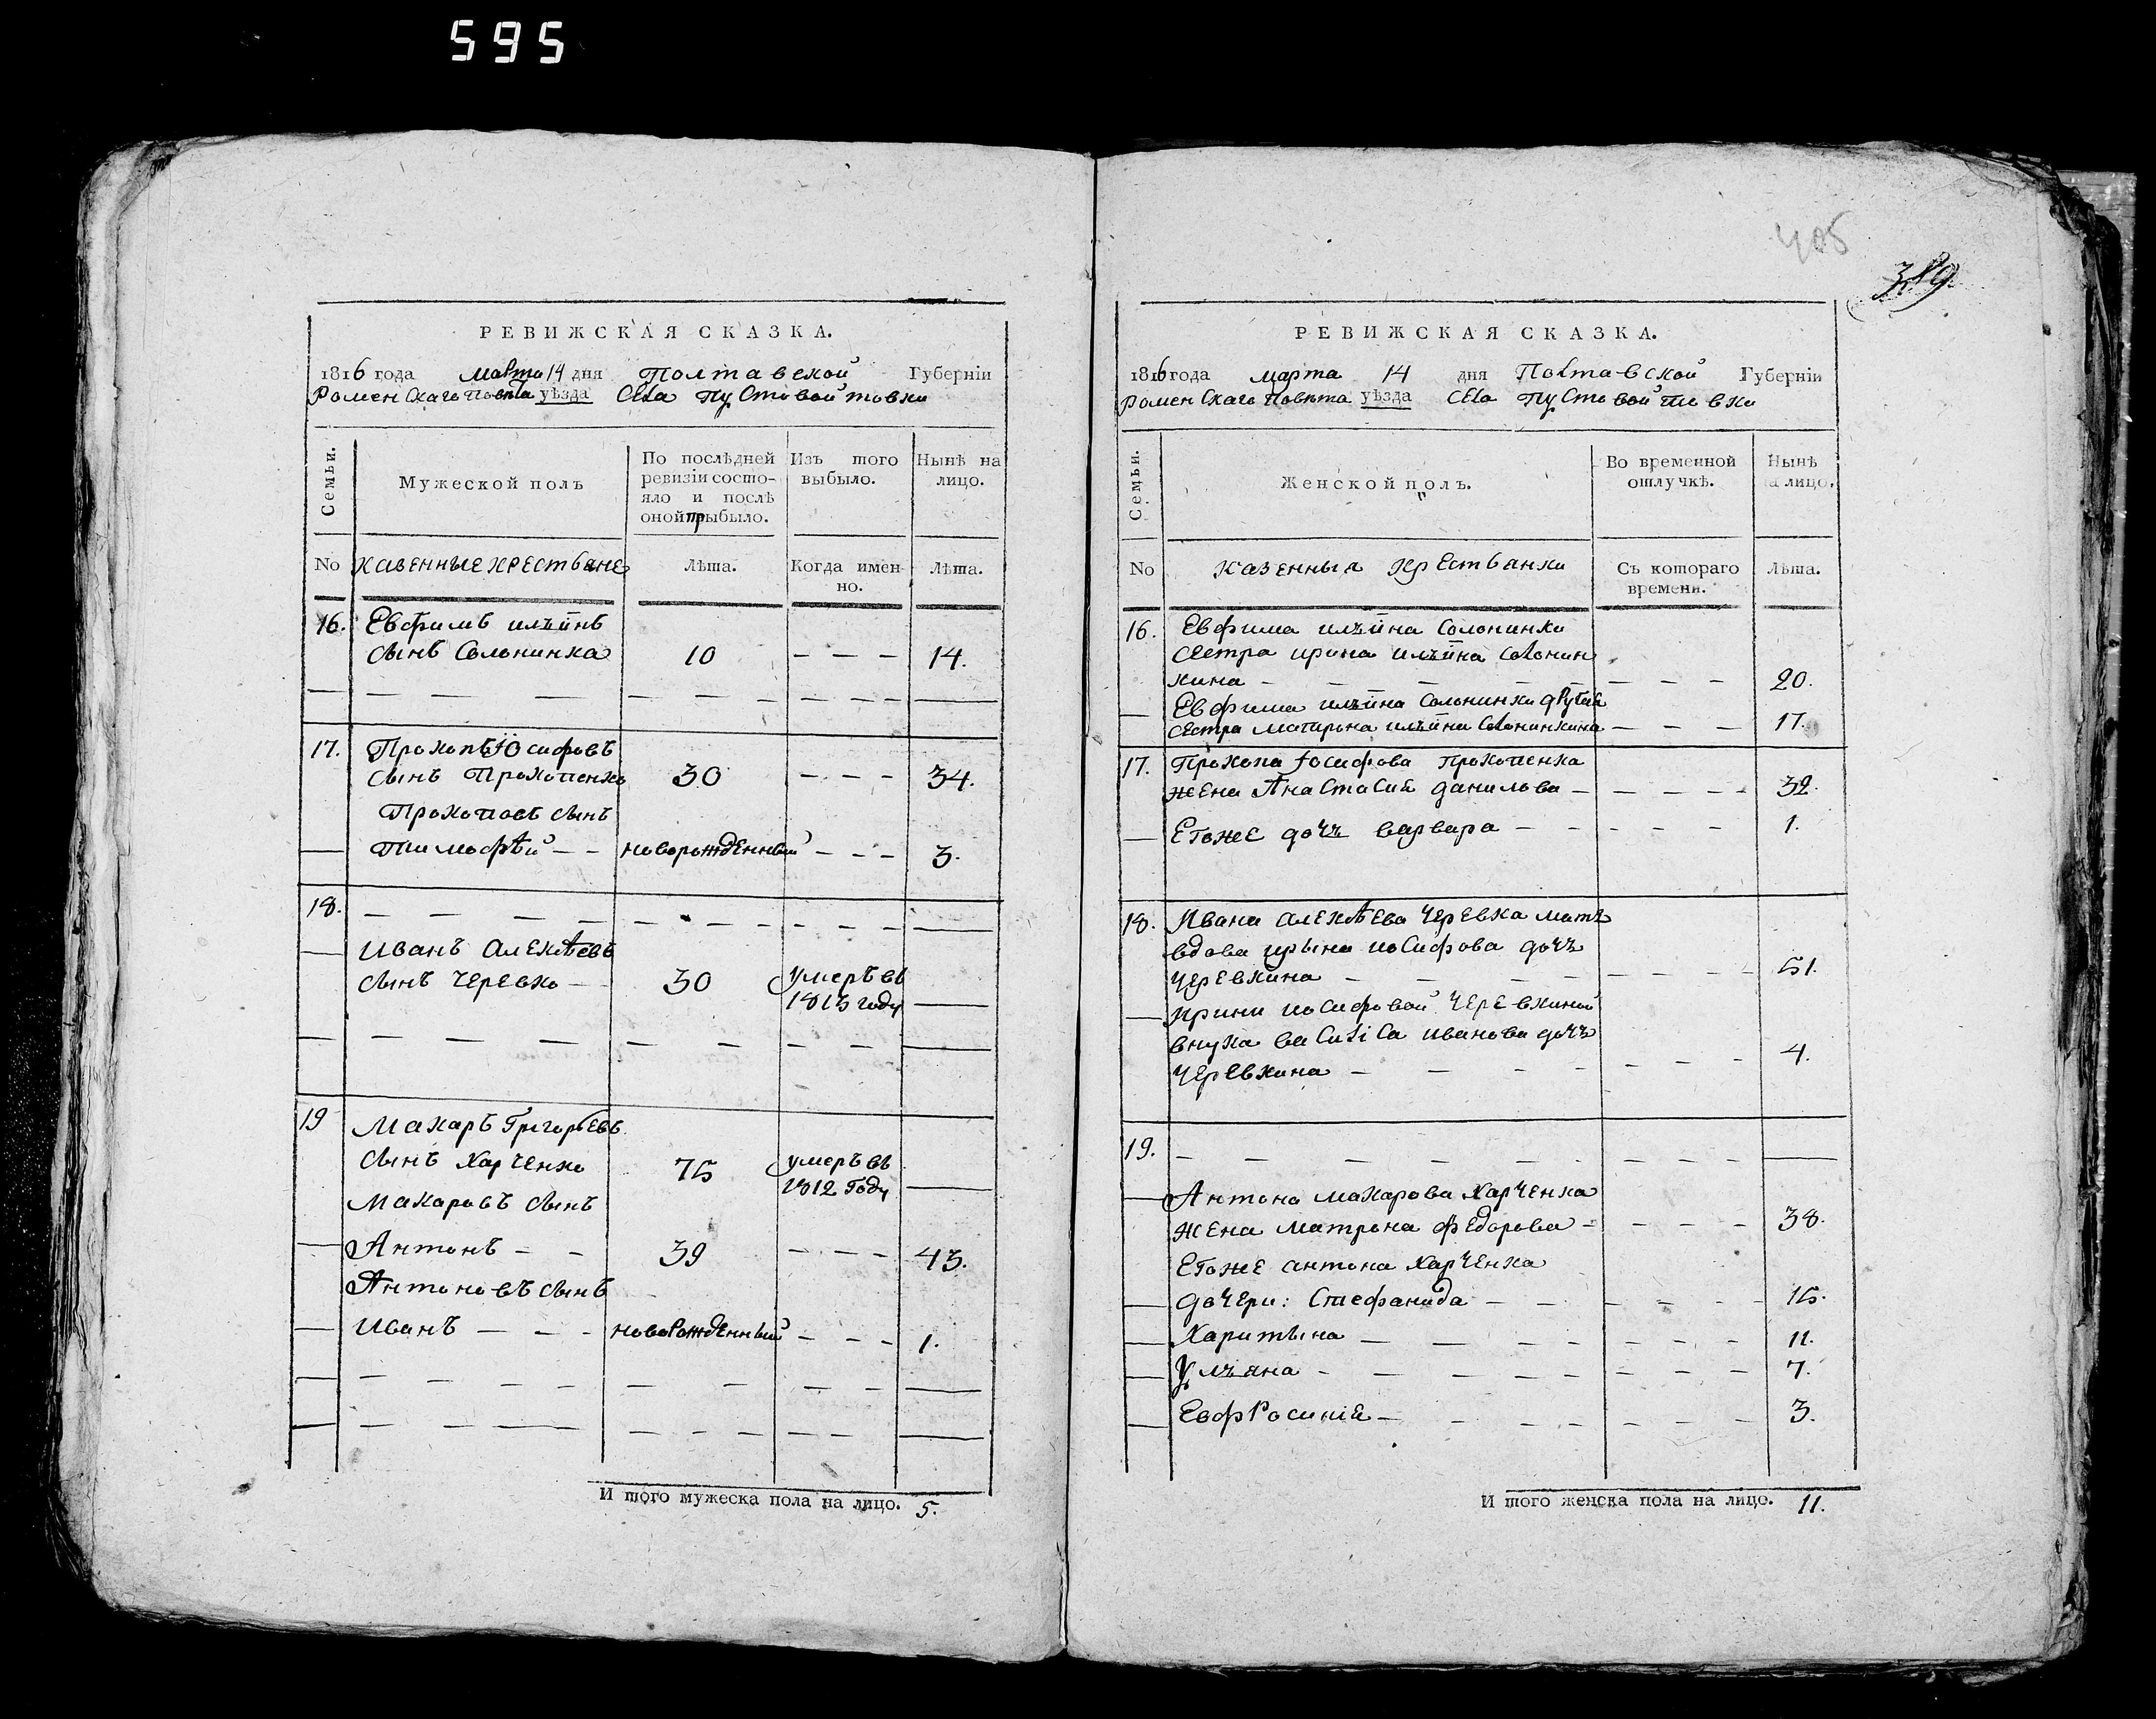 595
РЕВИЖСКАЯ СКАЗКА.
1816 года марта 14 дня Полтавской Губерніи
Роменскаго повѣта уѣзда села Пустовойтовки
Семьи.
Мужеской полъ
По послѣдней ревизіи состояло и послѣ оной прыбыло.
Изъ того выбыло.
Нынѣ на лицо.
No казенные крестьяне Лѣта. Когда именно. Лѣта.
16. Евфимъ ильинъ
сынъ Солонинка 10 — — — 14.
17. Прокопъ Іосифовъ
сынъ Прокопенко 30 — — — 34.
Прокоповъ сынъ
Тимофѣй — — новорожденный — — — 3.
18. — — — —
Иванъ Алексѣевъ
сынъ Черевко — 30 умеръ въ
1813 году —
19 Макаръ Григорьевъ
сынъ Харченко 75 умеръ въ
1812 году —
Макаровъ сынъ
Антонъ — — 39 — — — 43.
Антоновъ сынъ
Иванъ — — — новорожденный — — — 1.
И того мужеска пола на лицо. 5.
405
389
РЕВИЖСКАЯ СКАЗКА.
1816 года марта 14 дня Полтавской Губерніи
Роменскаго повѣта уѣзда села Пустовойтовки
Семьи.
Женской полъ.
Во временной отлучкѣ.
Нынѣ на лицо.
No казенныя крестьянки Съ котораго времени. Лѣта.
16. Евфима ильина Солонинки
сестра ирина ильина Солонин
кина — — — — 20.
Евфима ильина Солонинки другая
сестра матрона ильина Солонинкина — — — 17.
17. Прокопа Іосифова прокопенка
жена Анастасия данилова — — — — 32.
Егоже дочъ варвара — — — — 1.
18. Ивана алексѣева Черевка мать
вдова ирына иосифова дочъ
Черевкина — — — — 51.
Ирини иосифовой Черевкиной
внука василіса иванова дочъ
Черевкина — — — — 4.
19. — — — —
Антона макарова Харченка
жена матрона федорова — — — — 38.
Егоже антона Харченка
дочери: Стефанида — — — — 15.
Харитына — — — — 11.
Ульяна — — — — 7.
Евфросинія — — — — 3.
И того женска пола на лицо. 11.